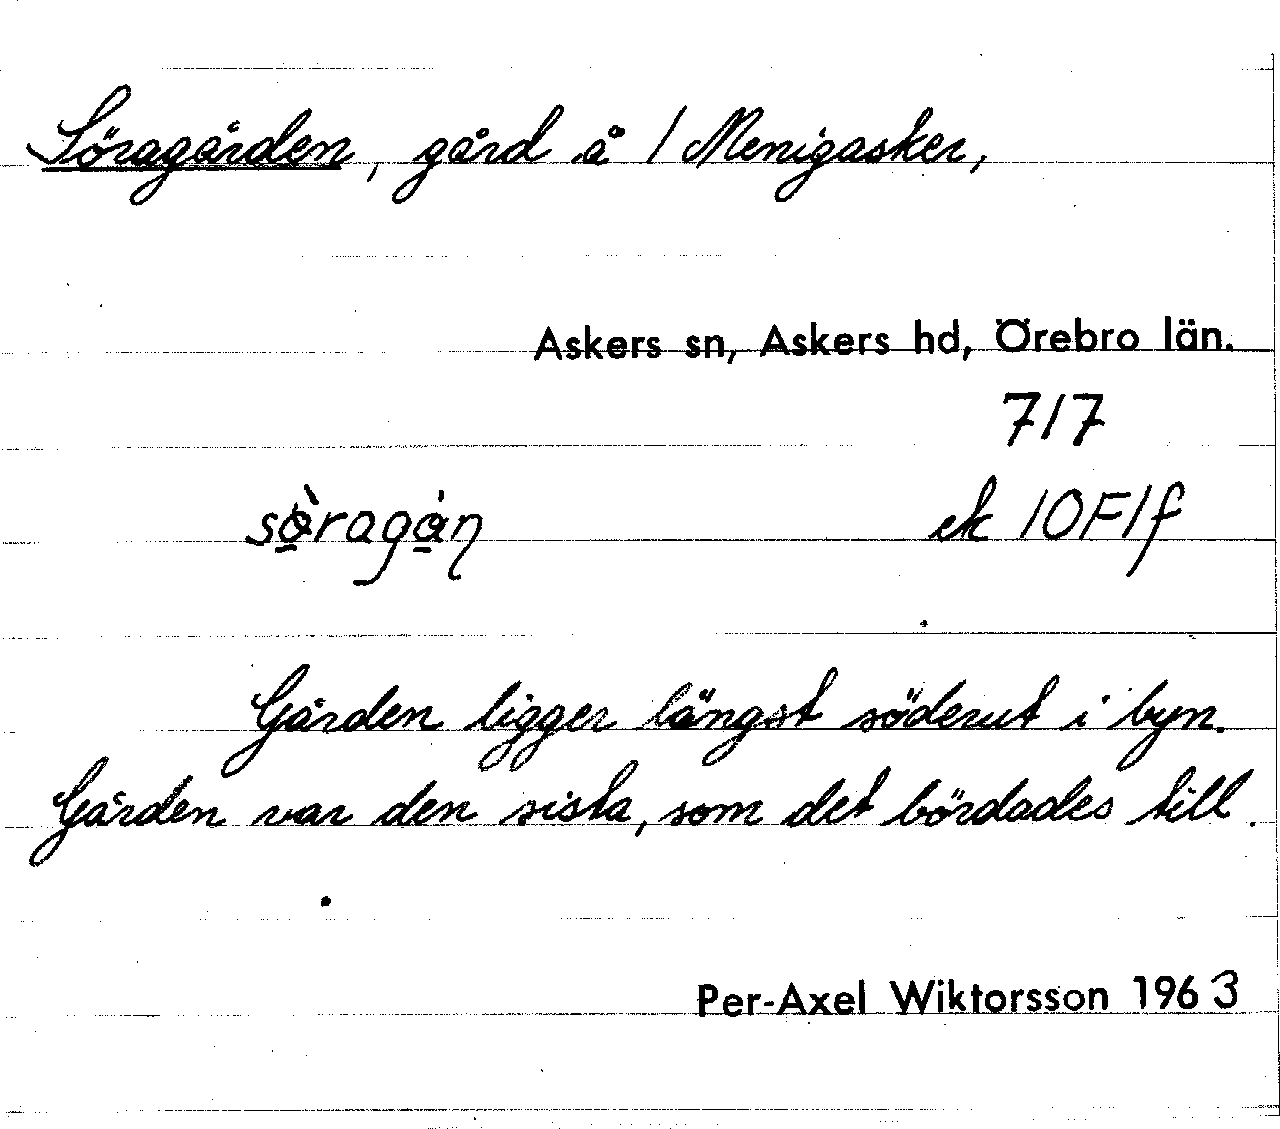 Söragården, gård å 1 Menigasker,
Askers sn, Askers hd, Örebro län.
717
sø̀ragán
ek 10F1f
Gården ligger längst söderut i byn.
Gården var den sista, som det bördades till.
Per-Axel Wiktorsson 1963